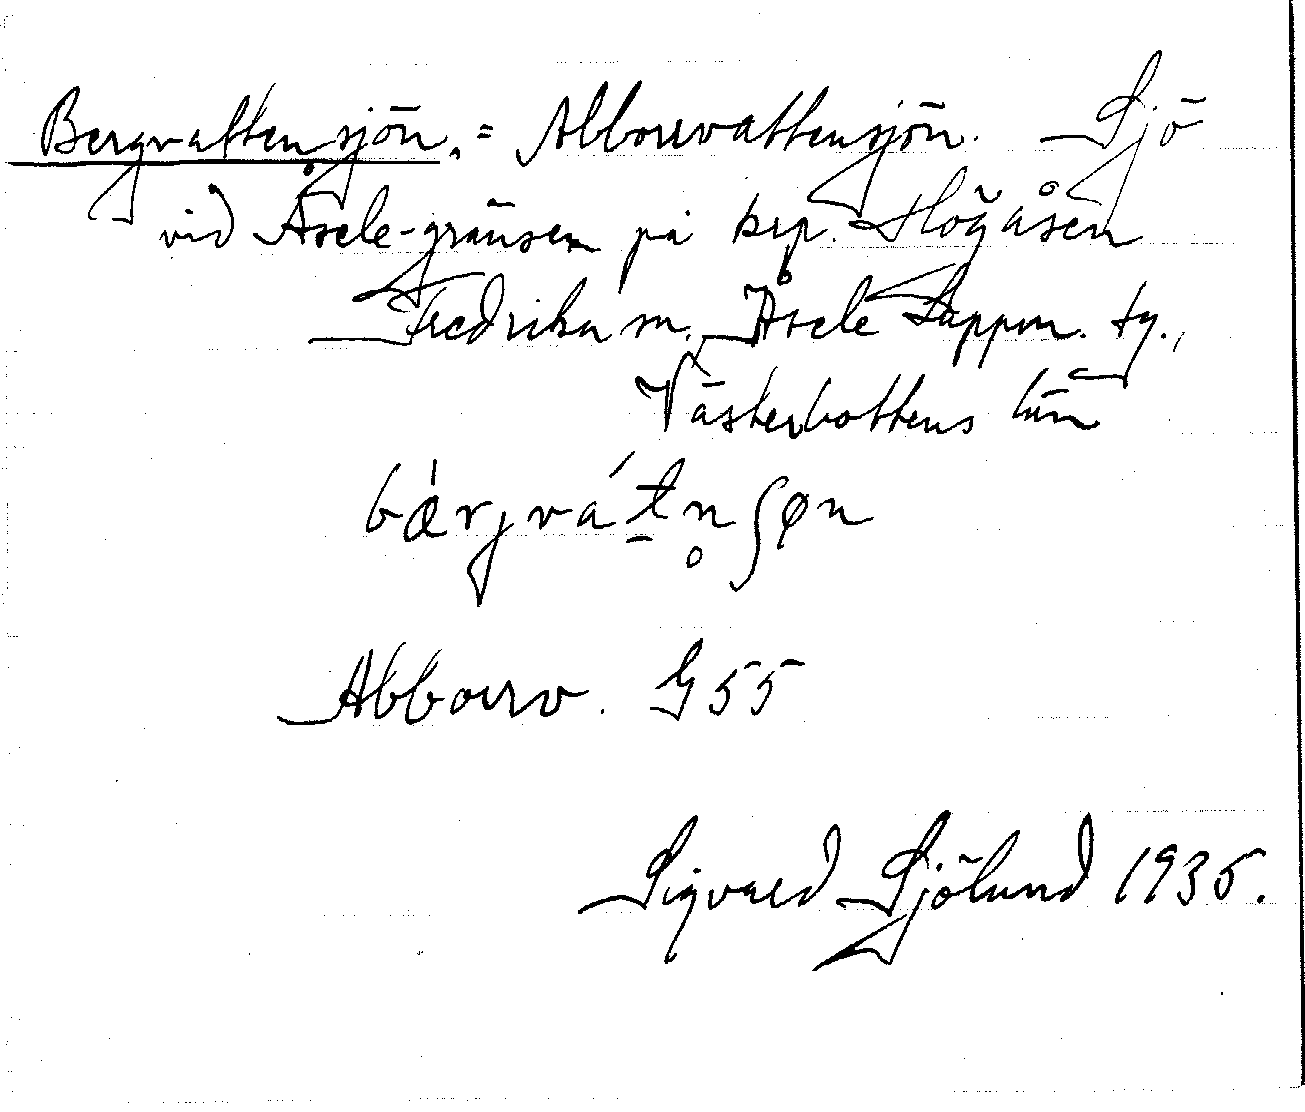 Bergvattensjön. = Abborrvattensjön. Sjö
vid Åsele-gränsen på krp. Högåsen
Fredrika sn. Åsele Lappm. tg.,
Västerbottens län
bǽrjvát̠n̥ʃøn
Abborrv. G 55
Sigvard Sjölund 1935.